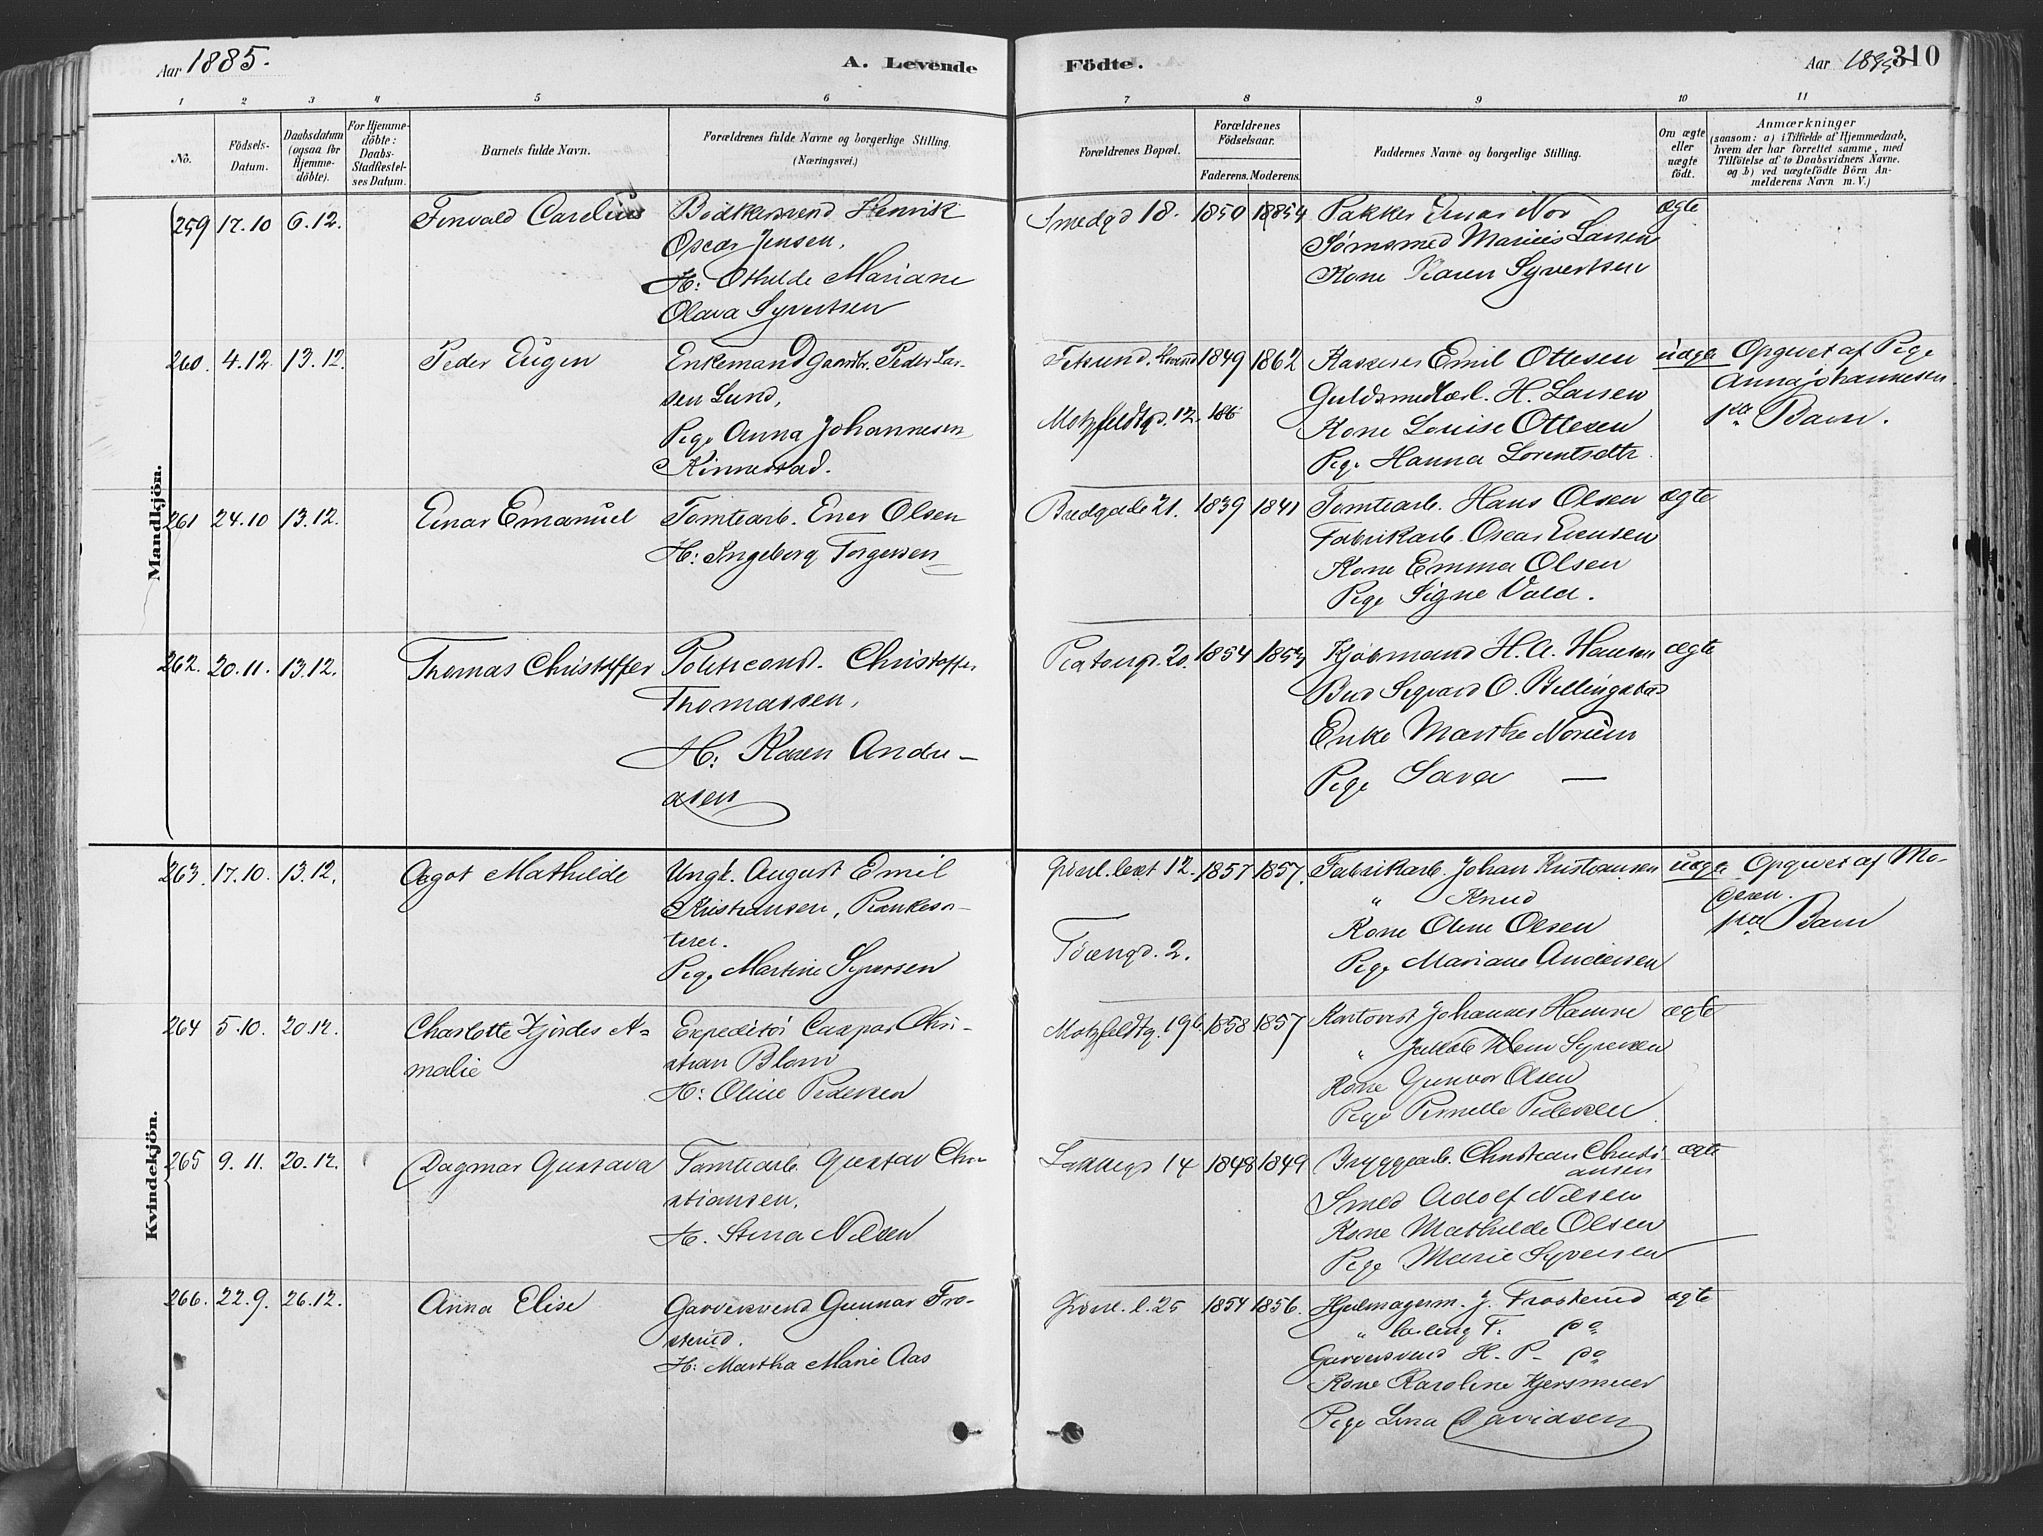 Aar 1885.
A. Levende
Födte.
Aar 1885
310
1 2 3 4 5 6 7 8 9 10 11
No.
Födsels-Datum.
Daabsdatum (ogsaa for Hjemme-döbte).
For Hjemme-döbte: Daabs-Stadfæstel-ses Datum.
Barnets fulde Navn.
Forældrenes fulde Navne og borgerlige Stilling. (Næringsvei.)
Forældrenes Bopæl.
Forældrenes Födselsaar.
Faderens. Moderens.
Faddernes Navne og borgerlige Stilling.
Om ægte eller uægte födt.
Anmærkninger
(saasom: a) i Tilfælde af Hjemmedaab, hvem der har forrettet samme, med Tilföielse af to Daabsvidners Navne. og b) ved uægtefödte Börn An-melderens Navn m. V.)
Mandkjön.
259 17.10 6.12. Finvald Carelius
Bødkersvend Henrik
Oscar Jensen,
H: Othilde Mariane
Olava Syvertsen
Smedgd 18. 1850 1854
Pakker Einar Nor
Sømsmed Marius Larsen
Kone Karen Syvertsen
ægte
260. 4.12 13.12. Peder Eugen
Enkemand Gaardbr. Peder Lar-
sen Lund,
Pige Anna Johannesen
Kinnestad.
Fetsund 1849 1862
Motzfeldtgd. 12. 186
Kasserer Emil Ottesen
Guldsmedlærl. H. Larsen
Kone Louise Ottesen
Pige Hanna Lorentsdtr.
uægte
Opgivet af Pige
Anna Johannesen.
1ste Barn.
261 24.10 13.12. Einar Emanuel
Tomtearb. Ener Olsen
H: Ingeborg Torgersen
Bredgade 21. 1839 1841
Tomtearb. Hans Olsen
Fabrikarb. Oscar Evensen
Kone Emma Olsen
Pige Signe
ægte
262. 20.11. 13.12. Thomas Christoffer
Politiconst. Christoffer
Thomassen,
H: Karen Andre-
asen
Platougd. 20. 1854 1853
Kjøbmand H. A. Hansen
Bud Sigvard O. Billingstad
Enke Marthe
Pige Sara —
ægte
Kvindekjön.
263. 17.10. 13.12. Aagot Mathilde
Ungk. August Emil
Kristiansen, Plankesor-
terer.
Pige Martine Syversen
Grønl. 12. 1857 1857.
Tøiengd. 2.
Fabrikarb. Johan Kristiansen
" Knud
Kone Oline Olsen
Pige Mariane Andersen
uægte
Opgivet af Mo-
deren.
1ste Barn
264 5.10. 20.12. Charlotte Hjørdis A-
malie
Expeditør Caspar Chri-
stian Blom
H: Oline Pedersen
Motzfeldtg. 19b 1858 1857
Kontorist Johannes Hamre
" Jakob Klem Syversen
Kone Gunvor Olsen
Pige Pernille Pedersen
ægte
265 9.11. 20.12. Dagmar Gustava
Tomtearb. Gustav Chri-
stiansen,
H. Stina Nilsen
Lakkegd 14 1848 1849
Bryggearb. Christian Christi-
ansen
Smed Adolf Nilsen
Kone Mathilde Olsen
Pige Marie Syversen
ægte
266. 22.9. 26.12. Anna Elise
Garversvend Gunnar Fro-
sterud.
H: Martha Marie Aas
Grønl. l. 25 1854 1856.
Hjulmagerm. J. Frosterud
" Erling F. do
Garversvend H. P— do
Kone Karoline
Pige Lina Davidsen
ægte